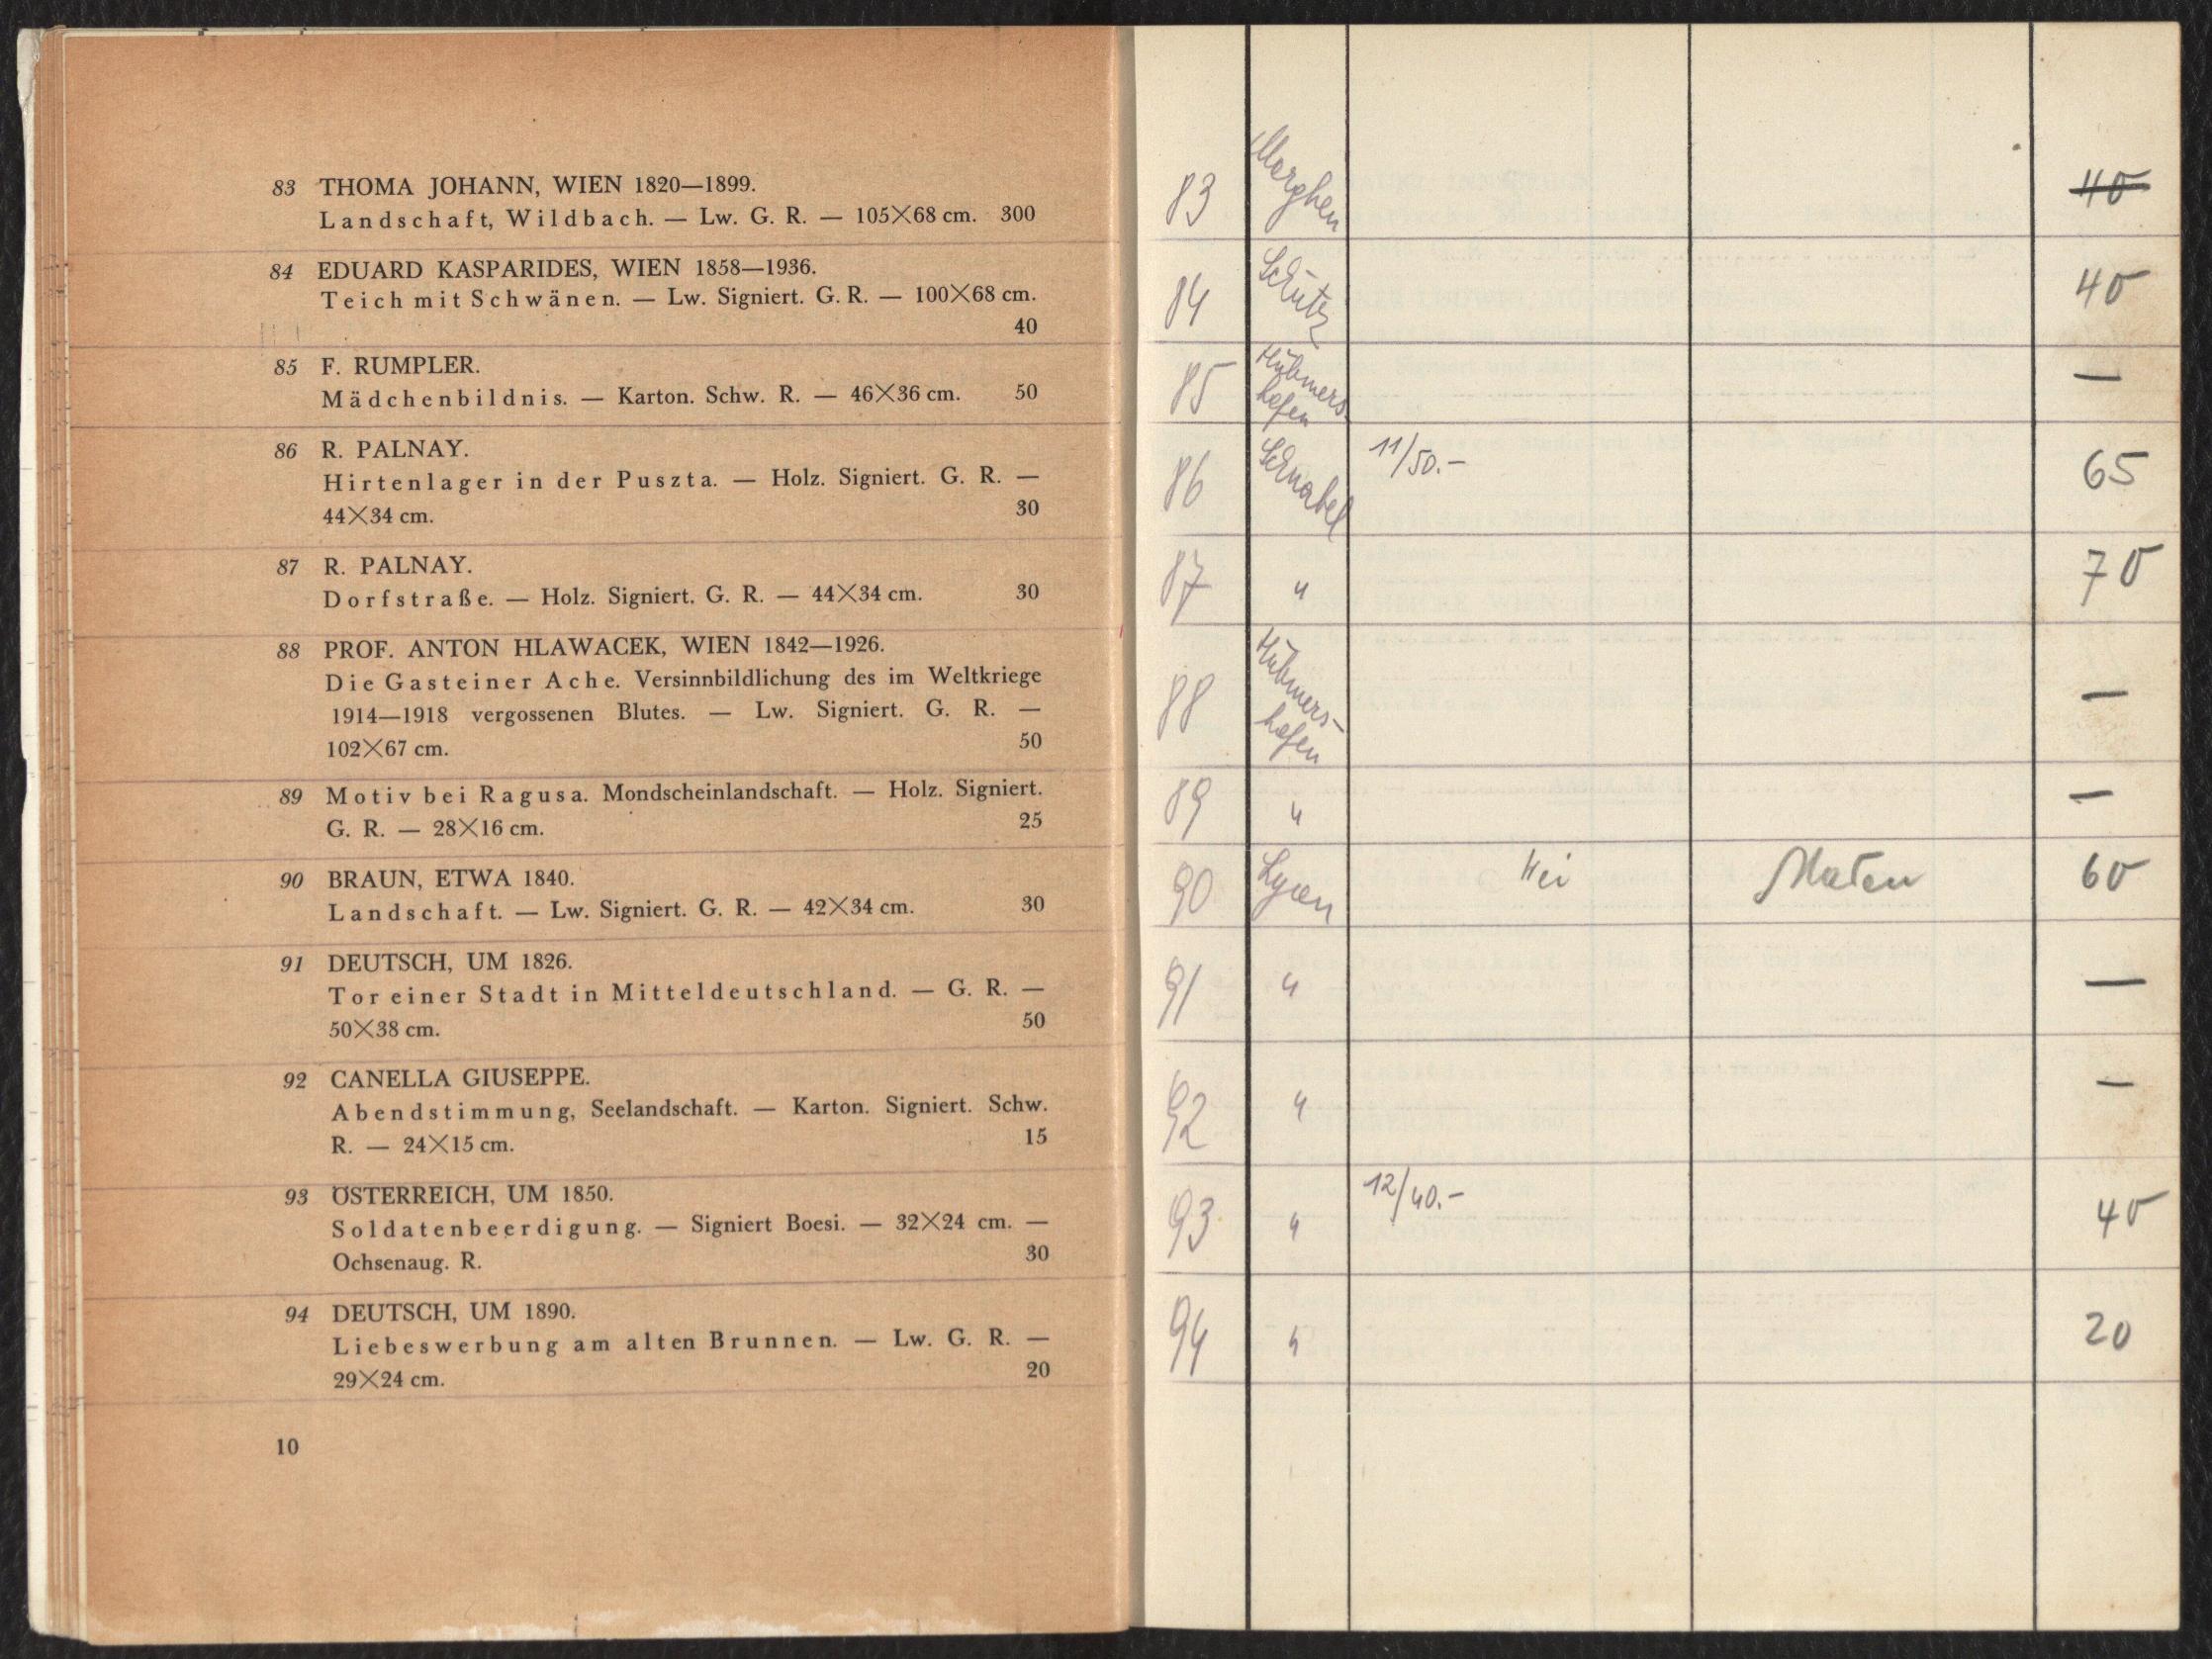 83 THOMA JOHANN, WIEN 1820—1899.
Landschaft, Wildbach. — Lw. G. R. — 105×68 cm. 300
84 EDUARD KASPARIDES, WIEN 1858—1936.
Teich mit Schwänen. — Lw. Signiert. G. R. — 100×68 cm.
40
85 F. RUMPLER.
Mädchenbildnis. — Karton. Schw. R. — 46×36 cm. 50
86 R. PALNAY.
Hirtenlager in der Puszta. — Holz. Signiert. G. R. —
44×34 cm. 30
87 R. PALNAY.
Dorfstraße. — Holz. Signiert. G. R. — 44×34 cm. 30
88 PROF. ANTON HLAWACEK, WIEN 1842—1926.
Die Gasteiner Ache. Versinnbildlichung des im Weltkriege
1914—1918 vergossenen Blutes. — Lw. Signiert. G. R. —
102×67 cm. 50
89 Motiv bei Ragusa. Mondscheinlandschaft. — Holz. Signiert.
G. R. — 28×16 cm. 25
90 BRAUN, ETWA 1840.
Landschaft. — Lw. Signiert. G. R. — 42×34 cm. 30
91 DEUTSCH, UM 1826.
Tor einer Stadt in Mitteldeutschland. — G. R. —
50×38 cm. 50
92 CANELLA GIUSEPPE.
Abendstimmung, Seelandschaft. — Karton. Signiert. Schw.
R. — 24×15 cm. 15
93 ÖSTERREICH, UM 1850.
Soldatenbeerdigung. — Signiert Boesi. — 32×24 cm. —
Ochsenaug. R. 30
94 DEUTSCH, UM 1890.
Liebeswerbung am alten Brunnen. — Lw. G. R. —
29×24 cm. 20
10
83 40
84 Schütz 40
85 Hühmers-
hofen —
86 Schnabel 11/50.- 65
87 " 70
88 Hühmers-
hofen —
89 " —
90 60
91 " —
92 " —
93 " 12/40.- 40
94 " 20